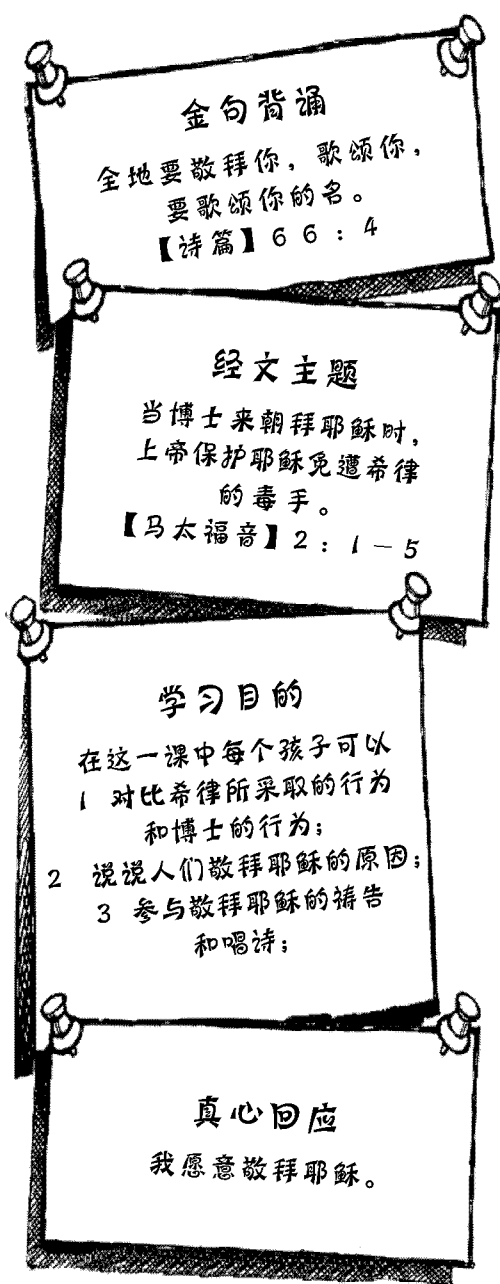 金句背诵
全地要敬拜你，歌颂你，
要歌颂你的名。
【诗篇】66：4
经文主题
当博士来朝拜耶稣时，
上帝保护耶稣免遭希律
的毒手。
【马太福音】2：1－5
学习目的
在这一课中每个孩子可以
1 对比希律所采取的行为
和博士的行为；
2 说说人们敬拜耶稣的原因；
3 参与敬拜耶稣的祷告
和唱诗；
真心回应
我愿意敬拜耶稣。